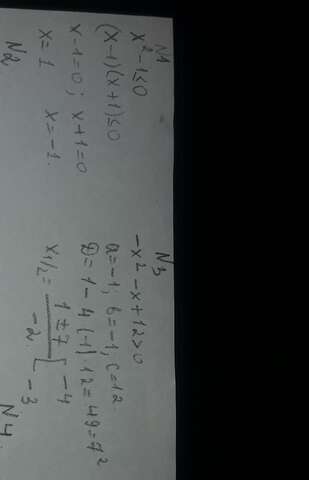 N1
x² - 1 ≤ 0
(x-1)(x+1) ≤ 0
x-1=0; x+1=0
x=1. x=-1.
N2
N3
-x² - x + 12 > 0
a=-1; b=-1, c=12.
D = 1 - 4·(-1)·12 = 49 = 7²
x1/2 = 1 ± 7 / -2 [ -4
-3
N4.